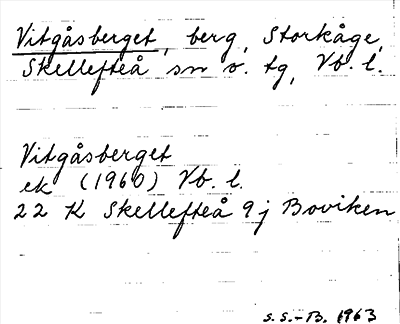 Vitgåsberget, berg, Storkåge,
Skellefteå sn o. tg, Vb. l.
Vitgåsberget
ek (1960) Vb. l.
22 K Skellefteå 9 j Boviken
S.S.-B. 1963